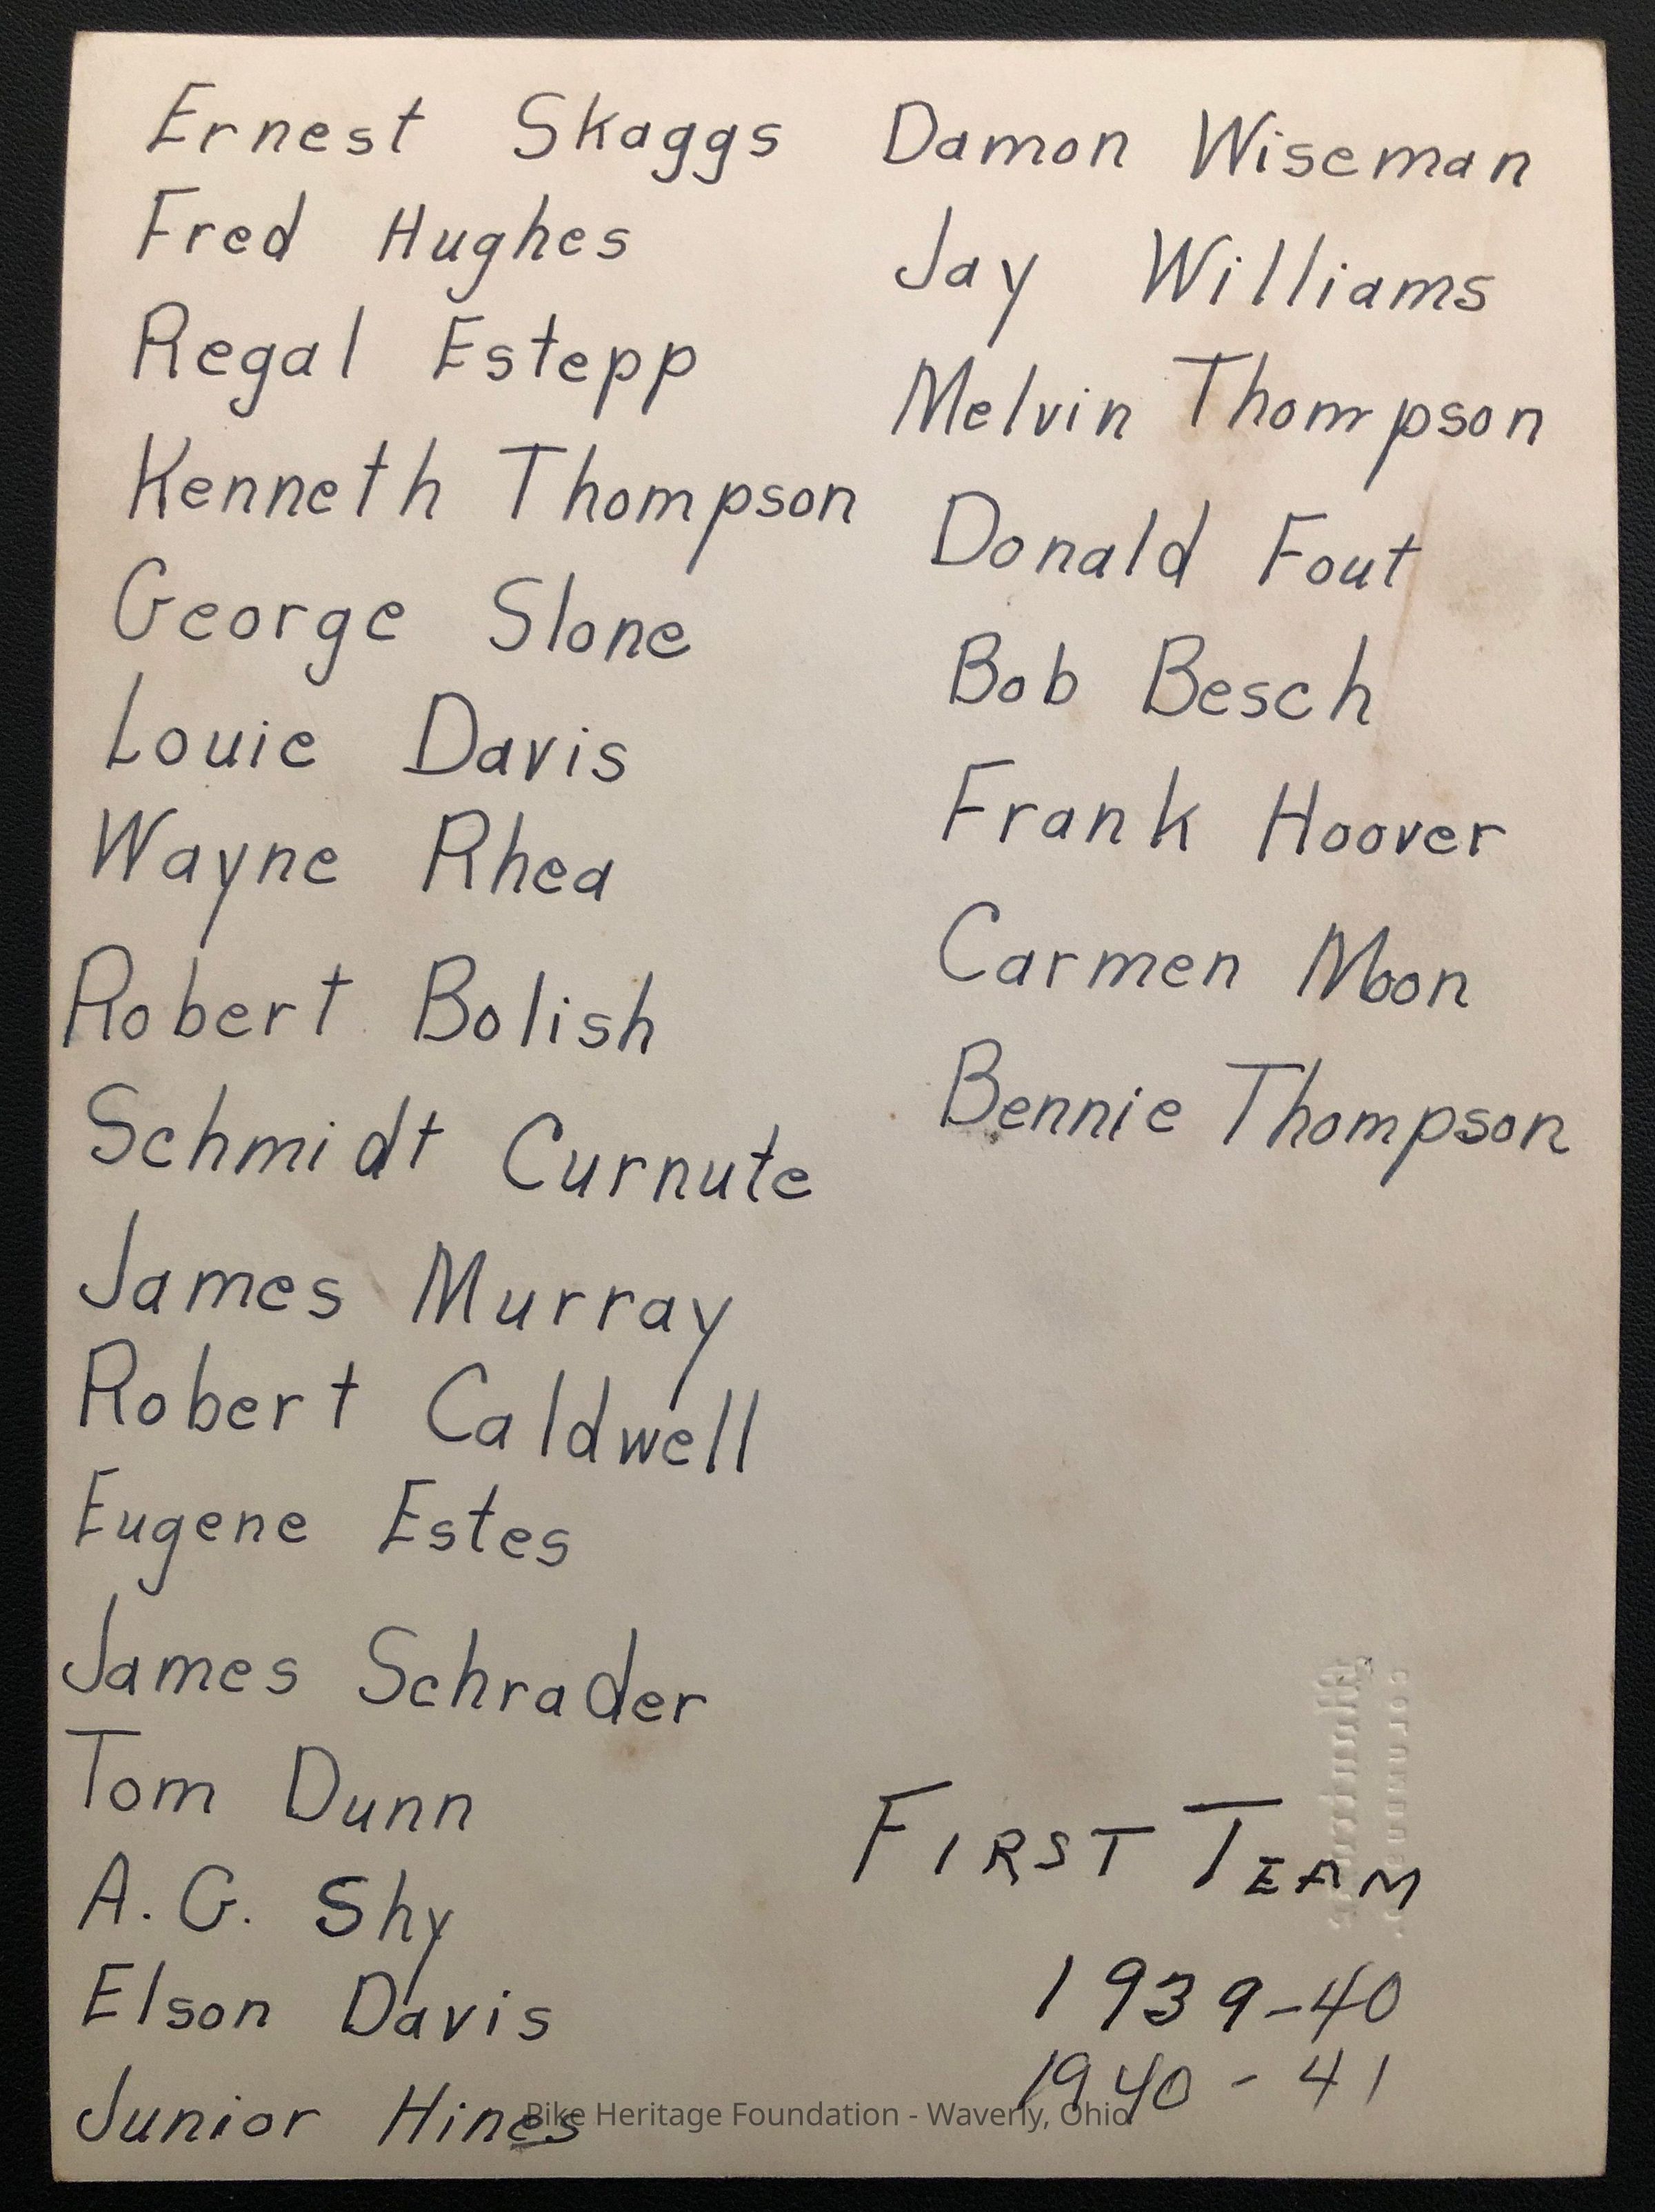 Ernest Skaggs
Fred Hughes
Regal Estepp
Kenneth Thompson
George Slone
Louie Davis
Wayne Rhea
Robert Bolish
Schmidt Curnute
James Murray
Robert Caldwell
Eugene Estes
James Schrader
Tom Dunn
A. G. Shy
Elson Davis
Junior Hines
Damon Wiseman
Jay Williams
Melvin Thompson
Donald Fout
Bob Besch
Frank Hoover
Carmen Moon
Bennie Thompson
FIRST TEAM
1939-40
1940-41
Pike Heritage Foundation - Waverly, Ohio